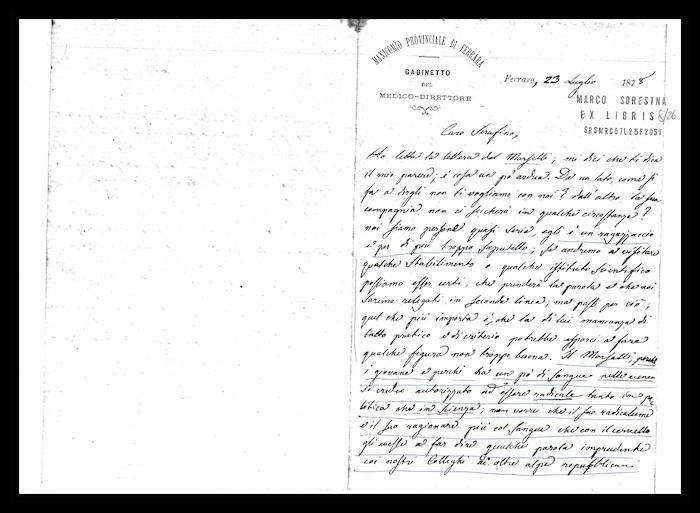 MANICOMIO PROVINCIALE DI FERRARA
GABINETTO
DEL
MEDICO-DIRETTORE
Ferrara, 23 Luglio 1878
MARCO SORESINA
EX LIBRIS 8/26
SRSMRC57L25F205V
Caro Serafino,
Ho letta la lettera del Morselli; mi dici che ti dia
il mio parere; è cosa un pò ardua. Da un lato, come si
fa a dirgli non ti vogliamo con noi? dall'altro la sua
compagnia non ci seccherà in qualche circostanza?
noi siamo persone quasi serie, egli è un ragazzaccio
e per di più troppo saputello; se andremo a visitare
qualche stabilimento o qualche istituto scientifico
possiamo esser certi, che prenderà la parola e che noi
saremo relegati in seconda linea; ma passi per ciò;
quel che più importa è, che la di lui mancanza di
tatto pratico e di criterio potrebbe esporci a fare
qualche figura non troppo buona. Il Morselli, perchè
è giovane e perchè ha un pò di sangue nelle vene
si crede autorizzato ad essere radicale tanto in po
litica che in scienza; non vorrei che il suo radicalismo
e il suo ragionare più col sangue che con il cervello
gli avesse a far dire qualche parola imprudente
coi nostri Colleghi di oltre alpe repubblicani